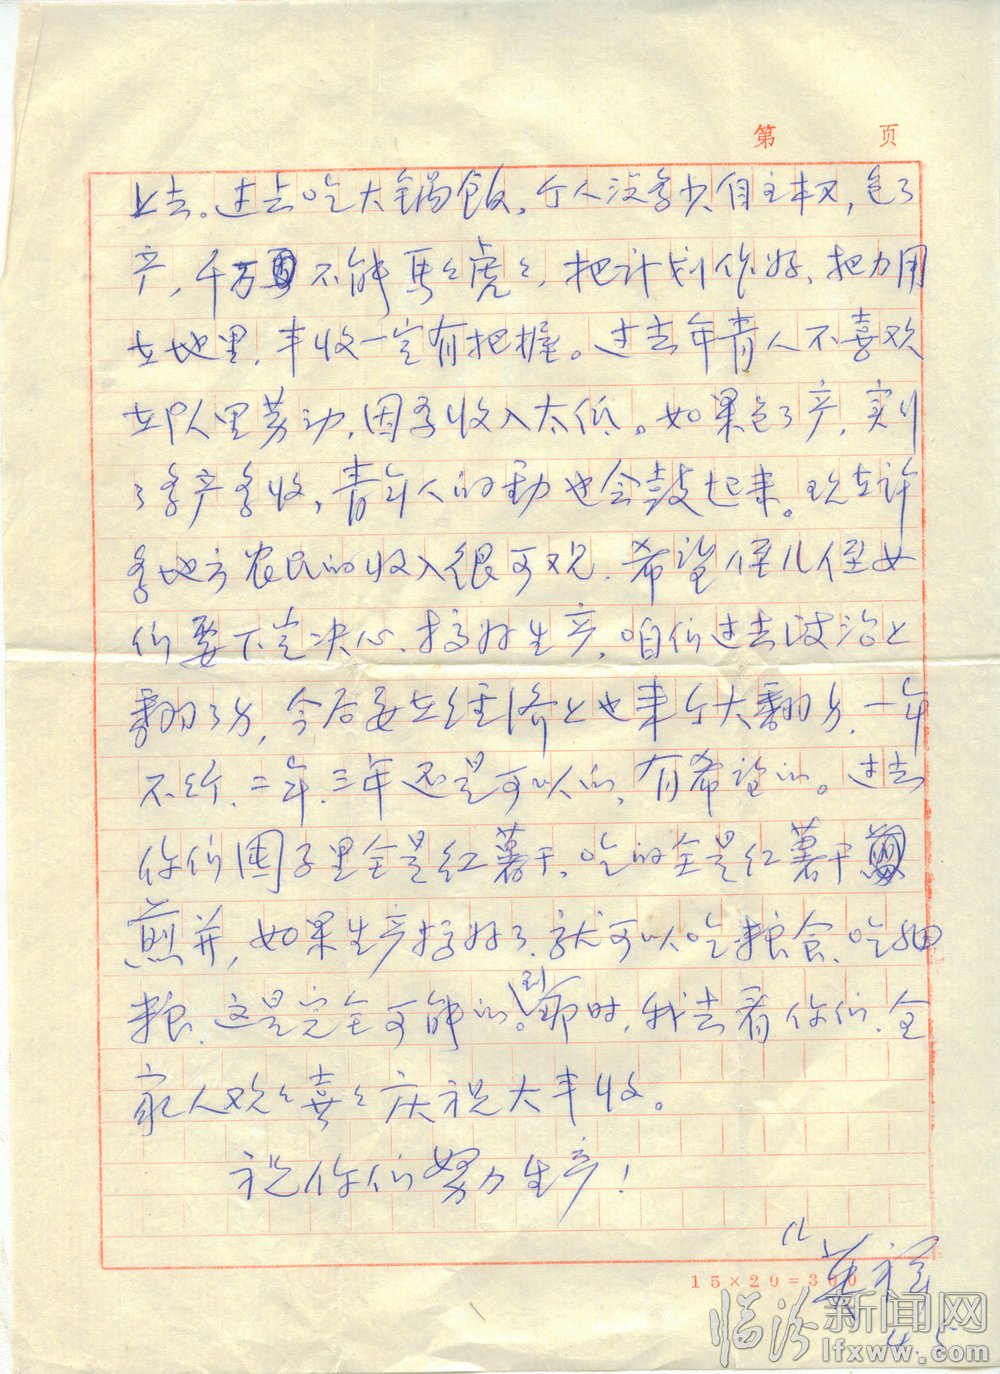 第 页
上去。过去吃大锅饭，个人没多少自主权，包了
产，千万不能马々虎々，把计划作好，把力用
在地里，丰收一定有把握。过去年青人不喜欢
在队里劳动，因为收入太低。如果包了产，实行
了多产多收，青年人的劲也会鼓起来。现在许
多地方农民的收入很可观，希望侄儿侄女
们要下定决心，搞好生产，咱们过去政治上
翻了身，今后要在经济上也来个大翻身，一年
不行，二年、三年还是可以的，有希望的。过去
你们囤子里全是红薯干，吃的全是红薯干
煎并，如果生产搞好了，就可以吃粮食、吃细
粮，这是完全可能的。到那时，我去看你们，全
家人欢々喜々庆祝大丰收。
祝你们努力生产！
儿
4.5
15×20=300
临汾新闻网
lfxww.com